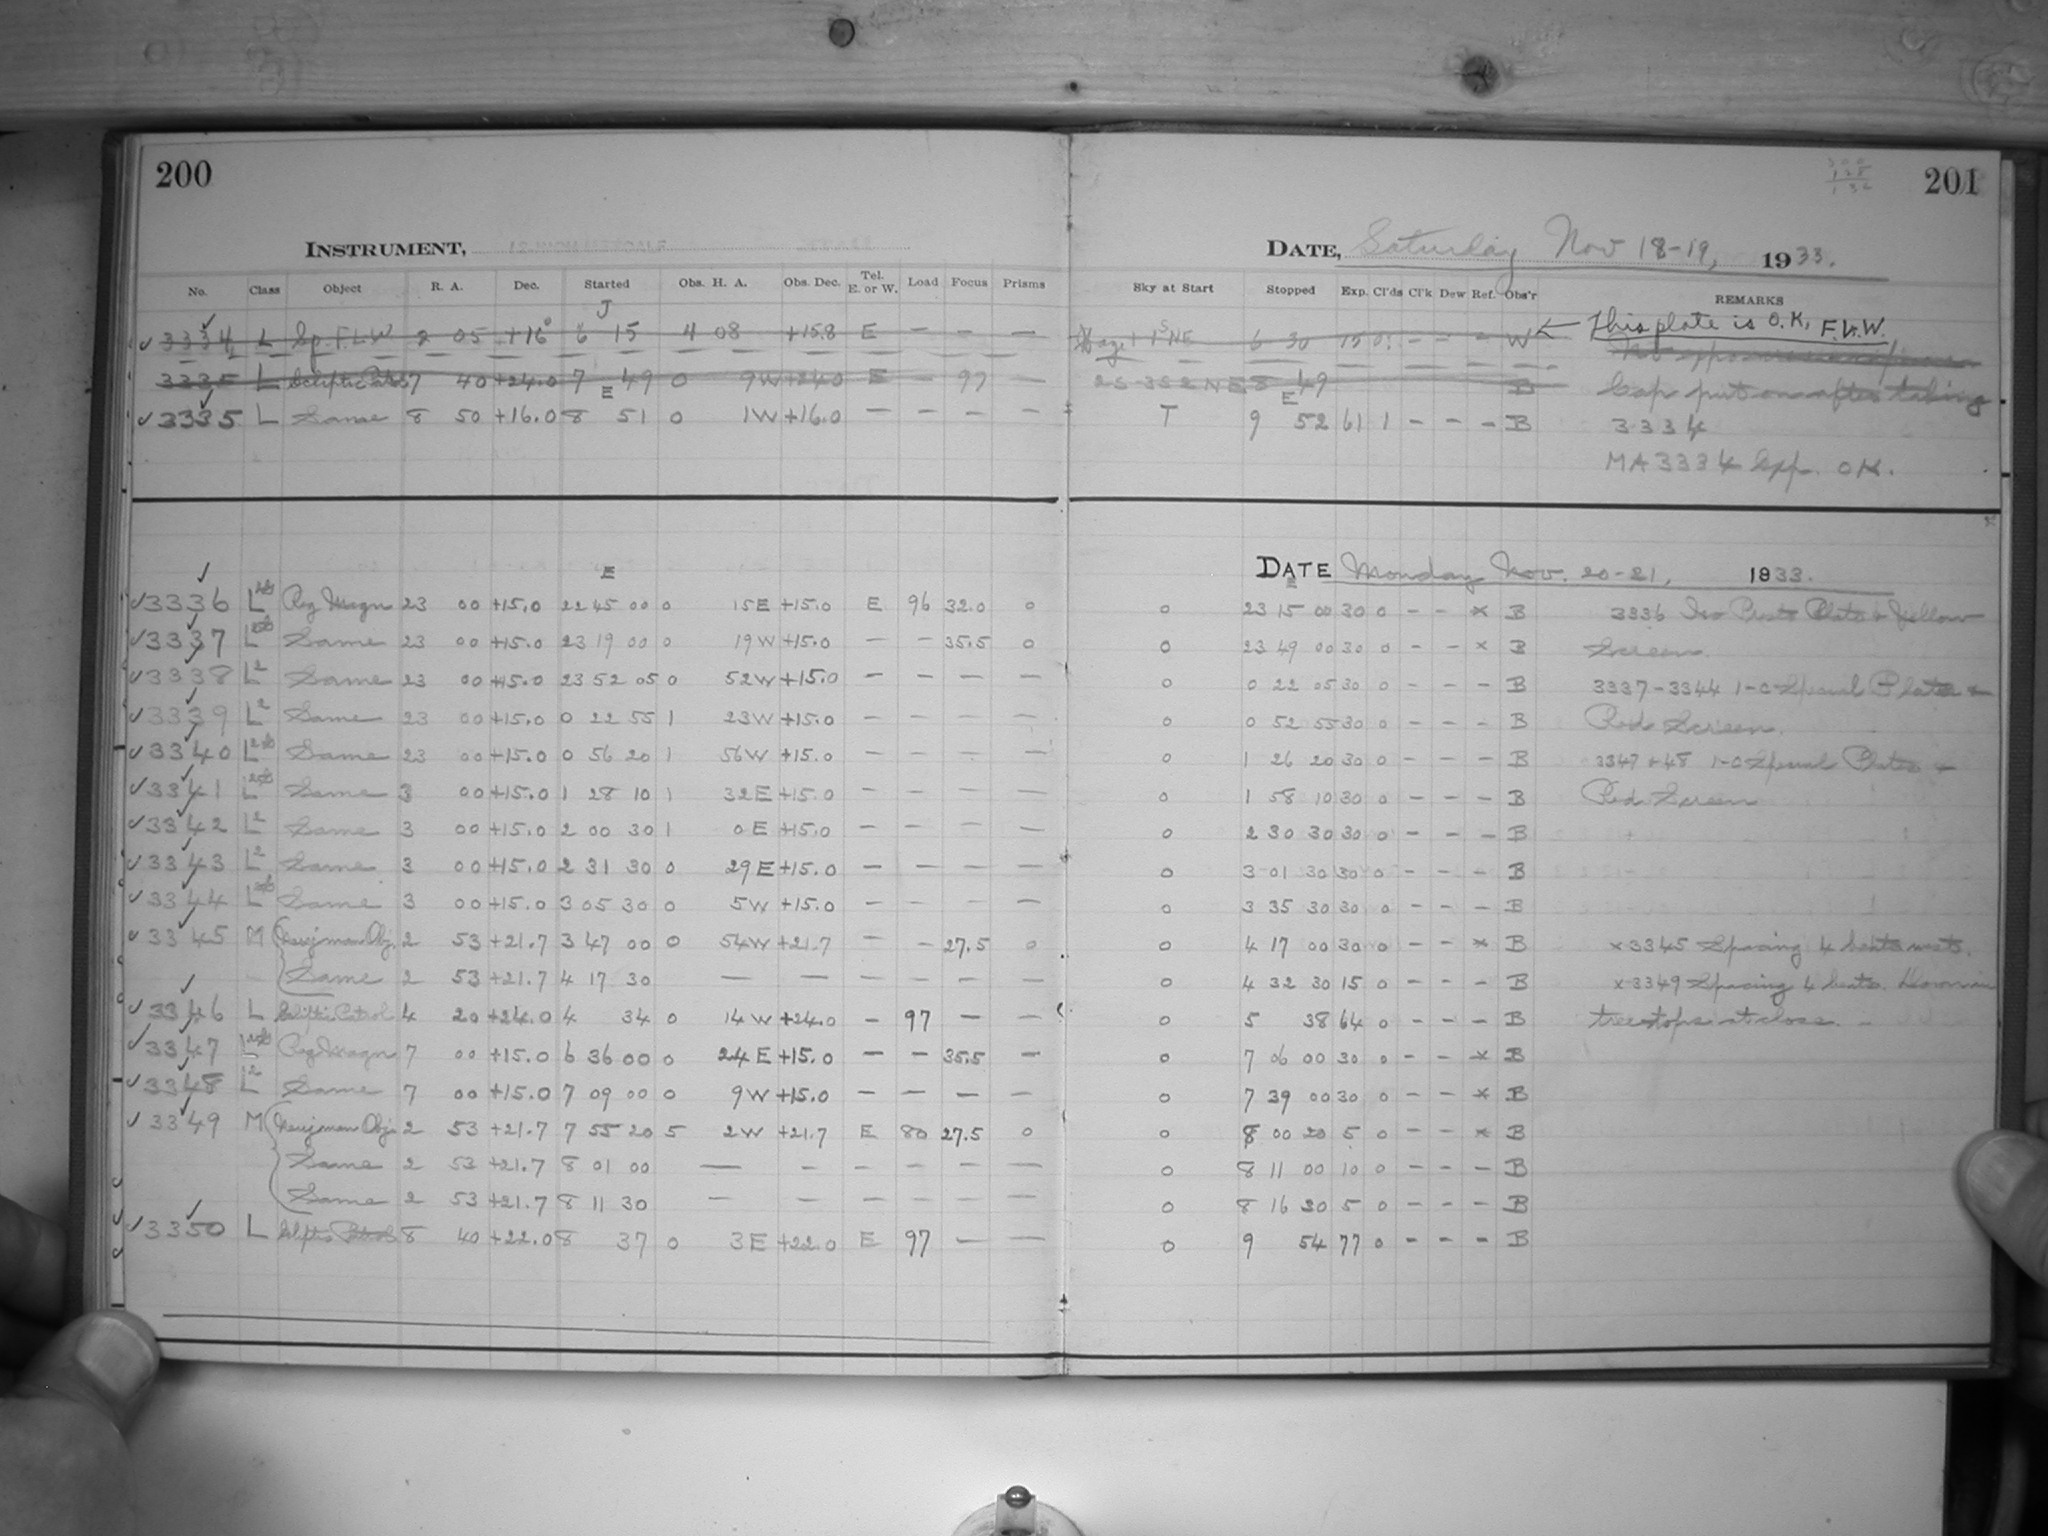 200
INSTRUMENT,
No. Class Object R. A. Dec. Started Obs. H. A. Obs. Dec. Tel. E. or W. Load Focus Prisms
J
3334 L Sp. F.L.W 2 05 +16° 6 15 4 08 +15.8 E — — —
3335 L 7 40 +24.0 7 49 0 9W +24.0 E — 97 —
E
3335 L Same 8 50 +16.0 8 51 0 1W +16.0 — — — —
E
3336 L Reg Magn 23 00 +15.0 22 45 00 0 15E +15.0 E 96 32.0 0
3337 L Same 23 00 +15.0 23 19 00 0 19W +15.0 — — 35.5 0
3338 L2 Same 23 00 +15.0 23 52 05 0 52W +15.0 — — — —
3339 L2 Same 23 00 +15.0 0 22 55 1 23W +15.0 — — — —
3340 L Same 23 00 +15.0 0 56 20 1 56W +15.0 — — — —
3341 L Same 3 00 +15.0 1 28 10 1 32E +15.0 — — — —
3342 L2 Same 3 00 +15.0 2 00 30 1 0E +15.0 — — — —
3343 L2 Same 3 00 +15.0 2 31 30 0 29E +15.0 — — — —
3344 L Same 3 00 +15.0 3 05 30 0 5W +15.0 — — — —
3345 M Obj. 2 53 +21.7 3 47 00 0 54W +21.7 — — 27.5 0
Same 2 53 +21.7 4 17 30 — — — — — —
3346 L Patrol 4 20 +24.0 4 34 0 14W +24.0 — 97 — —
3347 L Reg Magn 7 00 +15.0 6 36 00 0 24E +15.0 — — 35.5 —
3348 L2 Same 7 00 +15.0 7 09 00 0 9W +15.0 — — — —
3349 M Obj. 2 53 +21.7 7 55 20 5 2W +21.7 E 80 27.5 0
Same 2 53 +21.7 8 01 00 — — — — — —
Same 2 53 +21.7 8 11 30 — — — — — —
3350 L Patrol 8 40 +22.0 8 37 0 3E +22.0 E 97 — —
201
DATE, Saturday Nov 18-19, 1933.
Sky at Start Stopped Exp. Cl'ds Cl'k Dew Ref. Obs'r REMARKS
6 30 15 – – – W ← This plate is O.K, F.L.W.
2S 3S 2NE 8 49 B Cap put on after taking
E
T 9 52 61 1 – – – B 3334
MA 3334 Exp. OK.
DATE Monday Nov. 20-21, 1933.
E
0 23 15 00 30 0 – – x B 3336 Iso Press Plate & Yellow
0 23 49 00 30 0 – – x B Screen
0 0 22 05 30 0 – – – B 3337-3344 1-C Special Plates &
0 0 52 55 30 0 – – – B Red Screen.
0 1 26 20 30 0 – – – B 3347+48 1-C Special Plates &
0 1 58 10 30 0 – – – B Red Screen
0 2 30 30 30 0 – – – B
0 3 01 30 30 0 – – – B
0 3 35 30 30 0 – – – B
0 4 17 00 30 0 – – x B x3345 Spacing 4 beats west.
0 4 32 30 15 0 – – – B x3349 Spacing 4 beats. Down in
0 5 38 64 0 – – – B treetops at close.
0 7 06 00 30 0 – – x B
0 7 39 00 30 0 – – x B
0 8 00 20 5 0 – – x B
0 8 11 00 10 0 – – – B
0 8 16 30 5 0 – – – B
0 9 54 77 0 – – – B